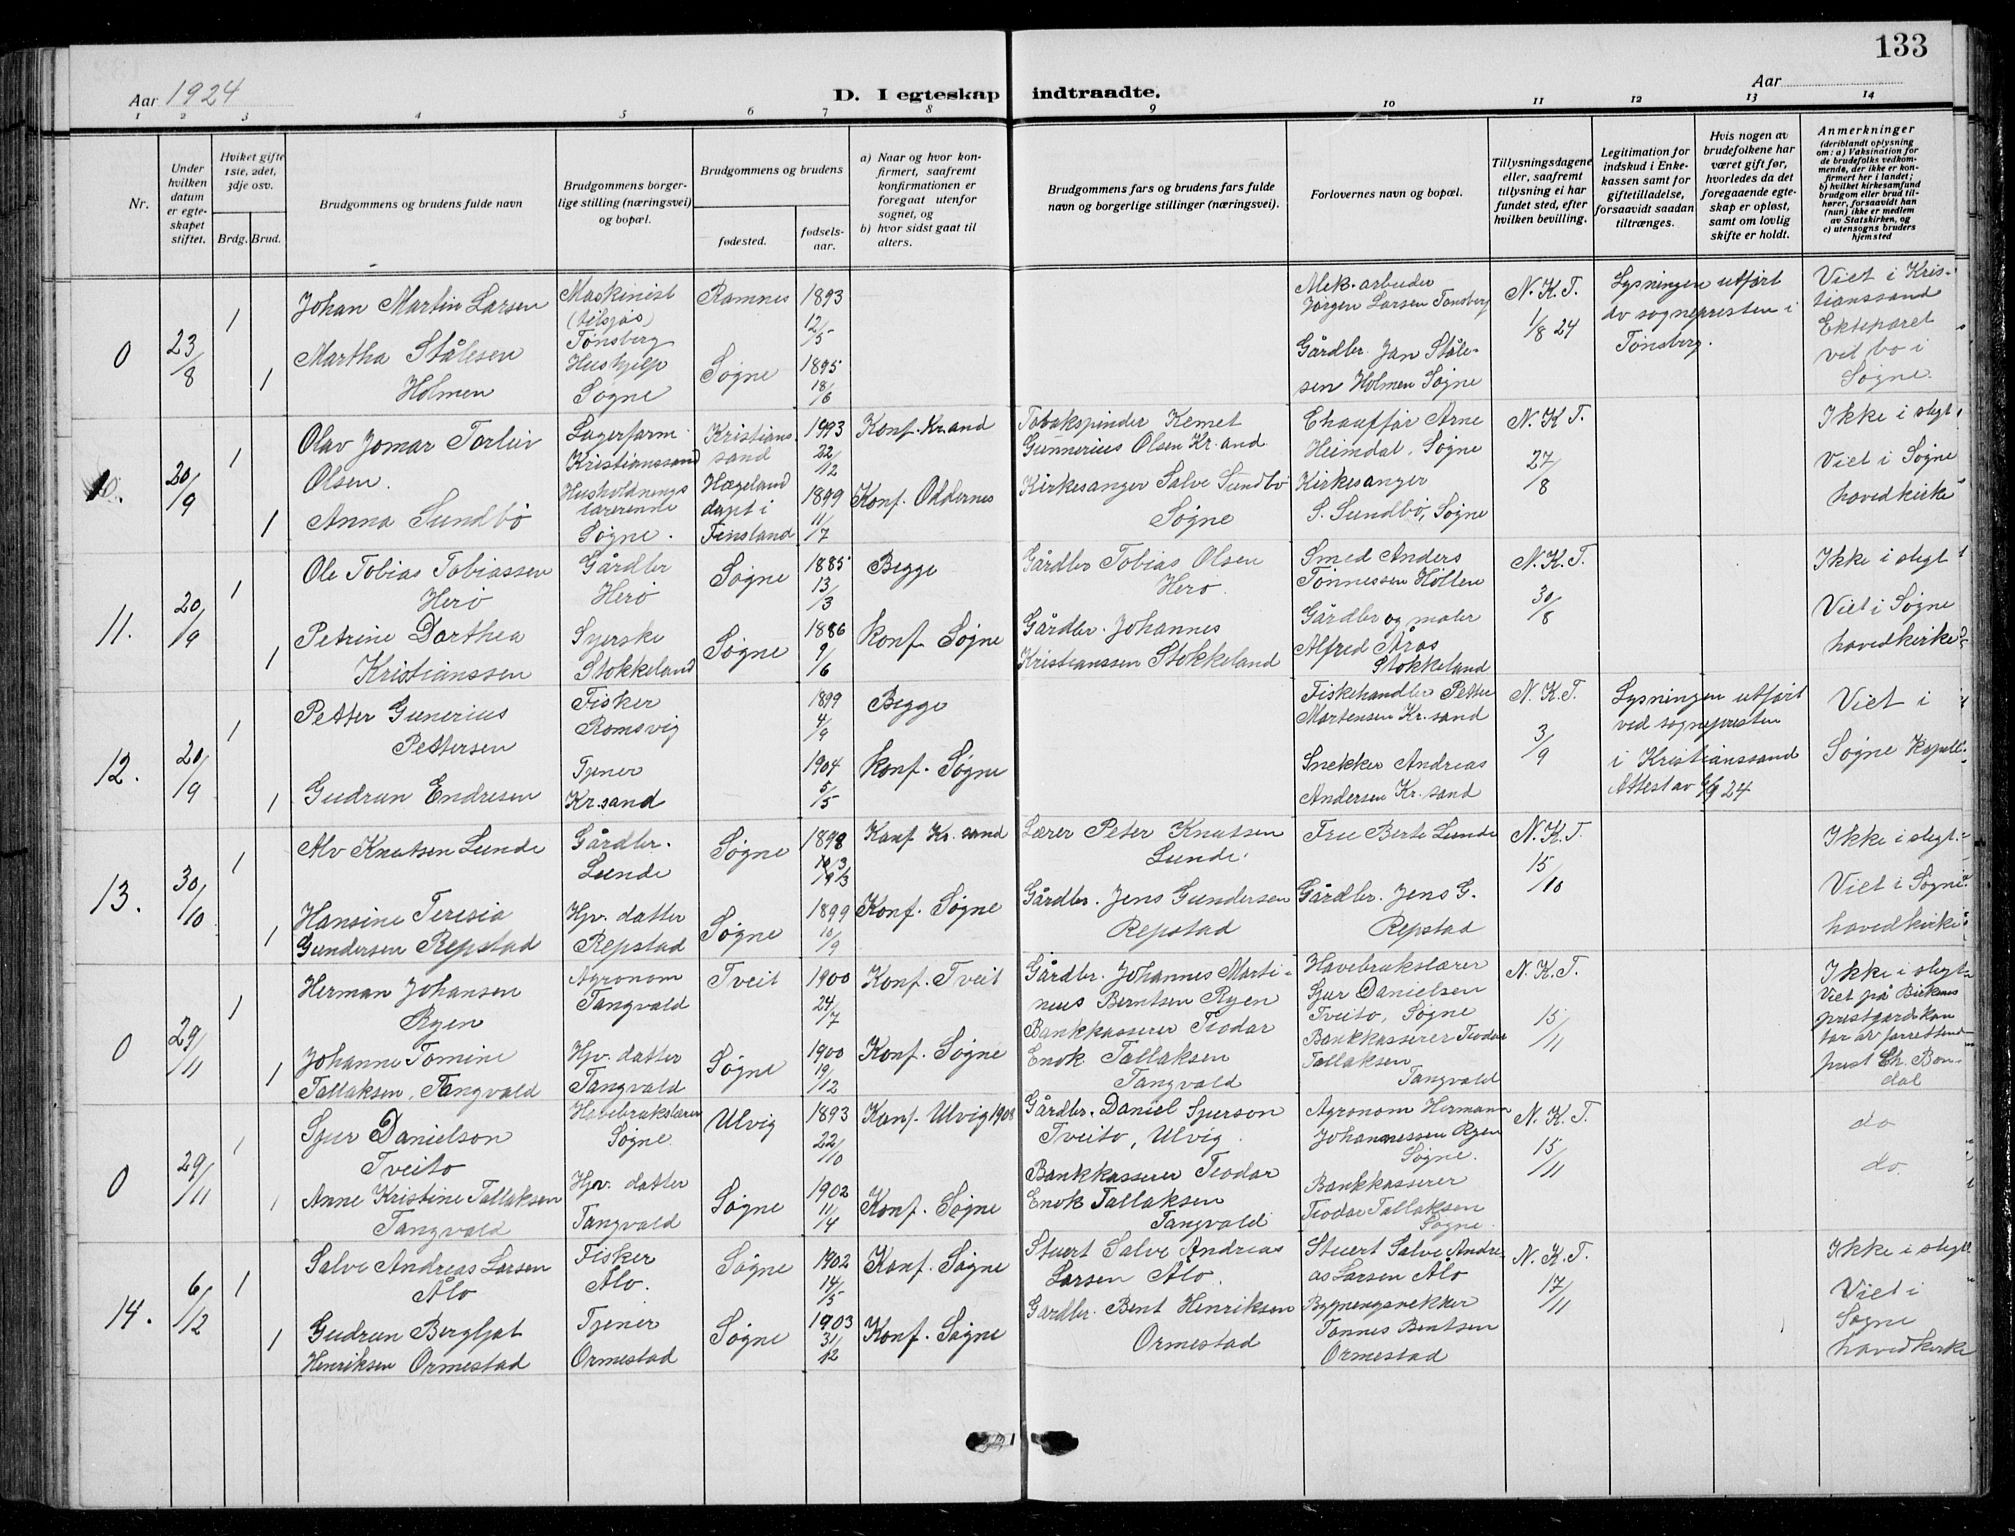 133
Aar 1924
D. I egteskap indtraadte.
Aar
1 2 3 4 5 6 7 8 9 10 11 12 13 14
Nr.
Under hvilken datum er egteskapet stiftet.
Hviket gifte 1ste, 2det, 3dje osv.
Brdg. Brud.
Brudgommens og brudens fulde navn
Brudgommens borgerlige stilling (næringsvei) og bopæl.
Brudgommens og brudens
fødested.
fødselsaar.
a) Naar og hvor konfirmert, saafremt konfirmationen er foregaat utenfor sognet, og
b) hvor sidst gaat til alters.
Brudgommens fars og brudens fars fulde navn og borgerlige stillinger (næringsvei).
Forlovernes navn og bopæl.
Tillysningsdagene eller, saafremt tillysning ei har fundet sted, efter hvilken bevilling.
Legitimation for indskud i Enkekassen samt for giftetilladelse, forsaavidt saadan tiltrænges.
Hvis nogen av brudefolkene har været gift før, hvorledes da det foregaaende egteskap er opløst, samt om lovlig skifte er holdt.
Anmerkninger (deriblandt oplysning om: a) Vaksination for de brudefolks vedkommende, der ikke er konfirmert her i landet; b) hvilket kirkesamfund brudgom eller brud tilhører, forsaavidt han (hun) ikke er medlem av Statskirken, og c) utensogns bruders hjemsted
0
23/8
1
Johan Martin Larsen
Maskinist
(tilsjøs)
Tønsberg
Ramnes
1893
12/5
Mek. arbeider
Jørgen Larsen Tønsberg
N.K.T.
1/8 24
Lysningen utført
av sognepresten i
Tønsberg.
Viet i Kris-
tianssand
Ekteparet
vil bo i
Søgne.
1
Martha Stålesen
Holmen
Hushjelp
Søgne
Søgne
1895
18/6
Gårdbr. Jan Ståle-
sen Holmen Søgne
10.
20/9
1
Olav Jomar Torleiv
Olsen.
Lagerform.
Kristianssand
Kristians
sand
1993
22/12
Konf. Kr.and
Tobakspinder Kemet
Gunnerius Olsen Kr.and
Chauffør Arne
Heimdal, Søgne
N.K.T.
27/8
Ikke i slegt
Viet i Søgne
hovedkirke
1
Anna Sundbø
Husholdnings
lærerinde
Søgne.
Hægeland
døpt i
Finsland
1899
11/7
Konf. Oddernes
Kirkesanger Salve Sundbø
Søgne
Kirkesanger
S. Sundbø, Søgne
11.
20/9
1
Ole Tobias Tobiassen
Herø
Gårdbr
Herø
Søgne
1885
13/3
Begge
Gårdbr Tobias Olsen
Herø.
Smed Anders
Tønnessen Høllen
N.K.T.
30/8
Ikke i slegt
Viet i Søgne
hovedkirke
1
Petrine Dorthea
Kristianssen
Syerske
Stokkeland
Søgne
1886
9/6
konf. Søgne
Gårdbr. Johannes
Kristianssen Stokkeland
Gårdbr og maler
Alfred Åros
Stokkeland
12.
20/9
1
Petter Gunerius
Pettersen
Fisker
Romsvig
1899
4/9
Begge
Fiskehandler Petter
Mortensen Kr.sand
N.K.T.
3/9
Lysningen utført
ved sognepresten
i Kristianssand
Attest av 6/9 24
Viet i
Søgne Kapell
1
Gudrun Endresen
Tjener
Kr.sand
1904
5/5
konf. Søgne
Snekker Andreas
Andersen Kr.sand
13.
30/10
1
Alv Knutsen Lunde
Gårdbr.
Lunde
Søgne
1898
Konf Kr.sand
Lærer Peter Knutsen
Lunde.
Fru Berte Lunde
N.K.T.
15/10
Ikke i slegt.
Viet i Søgne
hovedkirke
1
Hansine Teresia
Gundersen Repstad
Hjv. datter
Repstad
Søgne
1899
10/9
Konf. Søgne
Gårdbr. Jens Gundersen
Repstad
Gårdbr. Jens G.
Repstad
0
29/11
1
Herman Johansen
Ryen
Agronom
Tangvald
Tveit
1900
24/7
Konf. Tveit
Gårdbr. Johannes Marti-
nius Berntsen Ryen
Havebrukslærer
Sjur Danielsen
Tveito, Søgne
N.K.T.
15/11
Ikke i slegt
Viet på Birkenes
prestgårdskon
tor av forrettend-
prest Ch. Bon-
dal
1
Johanne Tomine
Tallaksen, Tangvald
Hjv. datter
Tangvald
Søgne
1900
19/12
Konf. Søgne
Bankkasserer Teodar
Enok Tallaksen
Tangvald
Bankkasserer Teodor
Tallaksen
Tangvald
0
29/11
1
Sjur Danielson
Tveito
Havebrukslærer
Søgne
Ulvig
1893
22/10
Konf. Ulvig 1908
Gårdbr. Daniel Sjurson
Tveito, Ulvig.
Agronom Hermann
Johannessen Ryen
Søgne.
N.K.T.
15/11
do
do
1
Anne Kristine Tallaksen
Tangvald
Hjv. datter
Tangvald
Søgne
1902
11/4
Konf. Søgne
Bankkasserer Teodar
Enok Tallaksen
Tangvald
Bankkasserer
Teodar Tallaksen
Søgne
14.
6/12
1
Salve Andreas Larsen
Ålo
Fisker
Ålo.
Søgne
1902
14/5
Konf. Søgne
Stuert Salve Andreas
Larsen Ålo.
Stuert Salve Andre-
as Larsen Ålo
N.K.T.
17/11
Ikke i slegt
Viet i
Søgne
hovedkirke
1
Gudrun Bergljot
Henriksen Ormestad
Tjener
Ormestad
Søgne
1903
31/12
Konf. Søgne
Gårdbr. Bent Henriksen
Ormestad
Bygningsnekker
Tønnes Bentsen
Ormestad